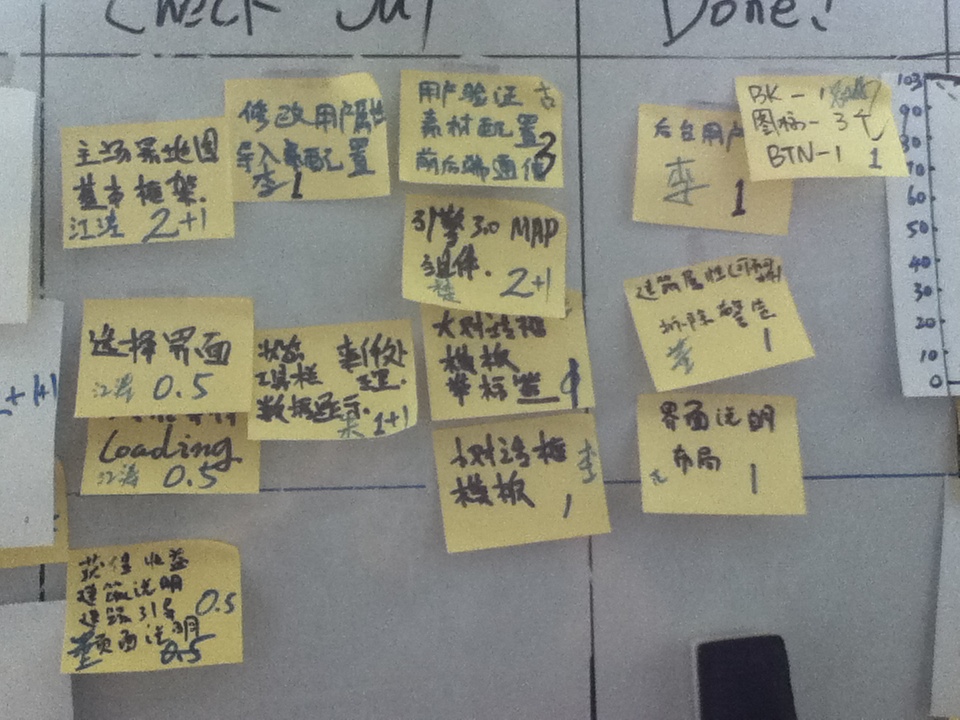 Check Out
Done!
主场景地图
基本框架.
江涛 2+1
修改用户属性
导入表配置
李 1
用户验证
素材配置
前后端通信 3
引擎3.0 MAP
组件.
2+1
选择界面
江涛 0.5
Loading
江涛 0.5
状态
工具栏
数据显示.
1+1
大对话框
模板
1
小对话框
模板
李
1
获得收益
建筑说明
建筑引导
页面说明
0.5
0.5
后台用户
李 1
BK-1
图标-3个
BTN-1 1
建筑属性
拆除警告
1
界面说明
布局
1
103
90
80
70
60
50
40
30
20
10
0